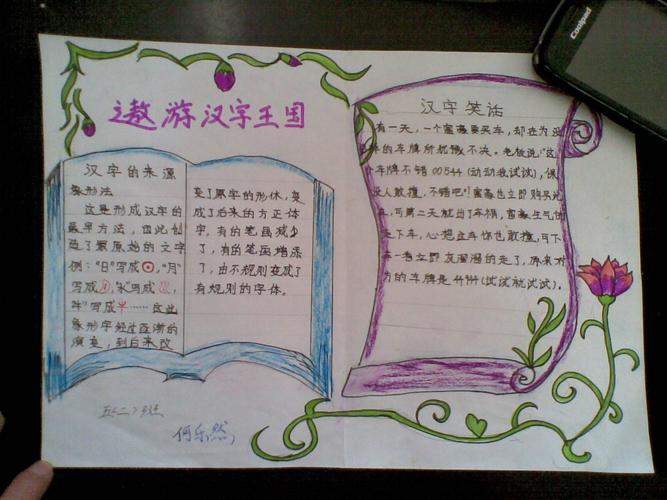 遨游汉字王国
汉字的来源
象形法
这是形成汉字的
最早方法，由此创
造了最原始的文字
例："日"写成 "月"
写成 "水"写成
写成 …… 这些
象形字经过逐渐的
演变，到后来改
变了原字的形体，变
成了后来的方正体
字，有的笔画减少
了，有的笔画增添
了，由不规则变成了
有规则的字体。
汉字笑话
有一天，一个富豪要买车，却在为
的车牌所犹豫不决。老板说："这
车牌不错00544（动动我试试），保
没人敢撞，不错吧！富豪也立即购买
，可第二天就出了车祸，富豪生气的
走下车，心想这车你也敢撞，可下
车一看立即灰溜溜的走了，原来对
方的车牌是4494（试试就试试）。
五（二）班
何乐然
Coolpad